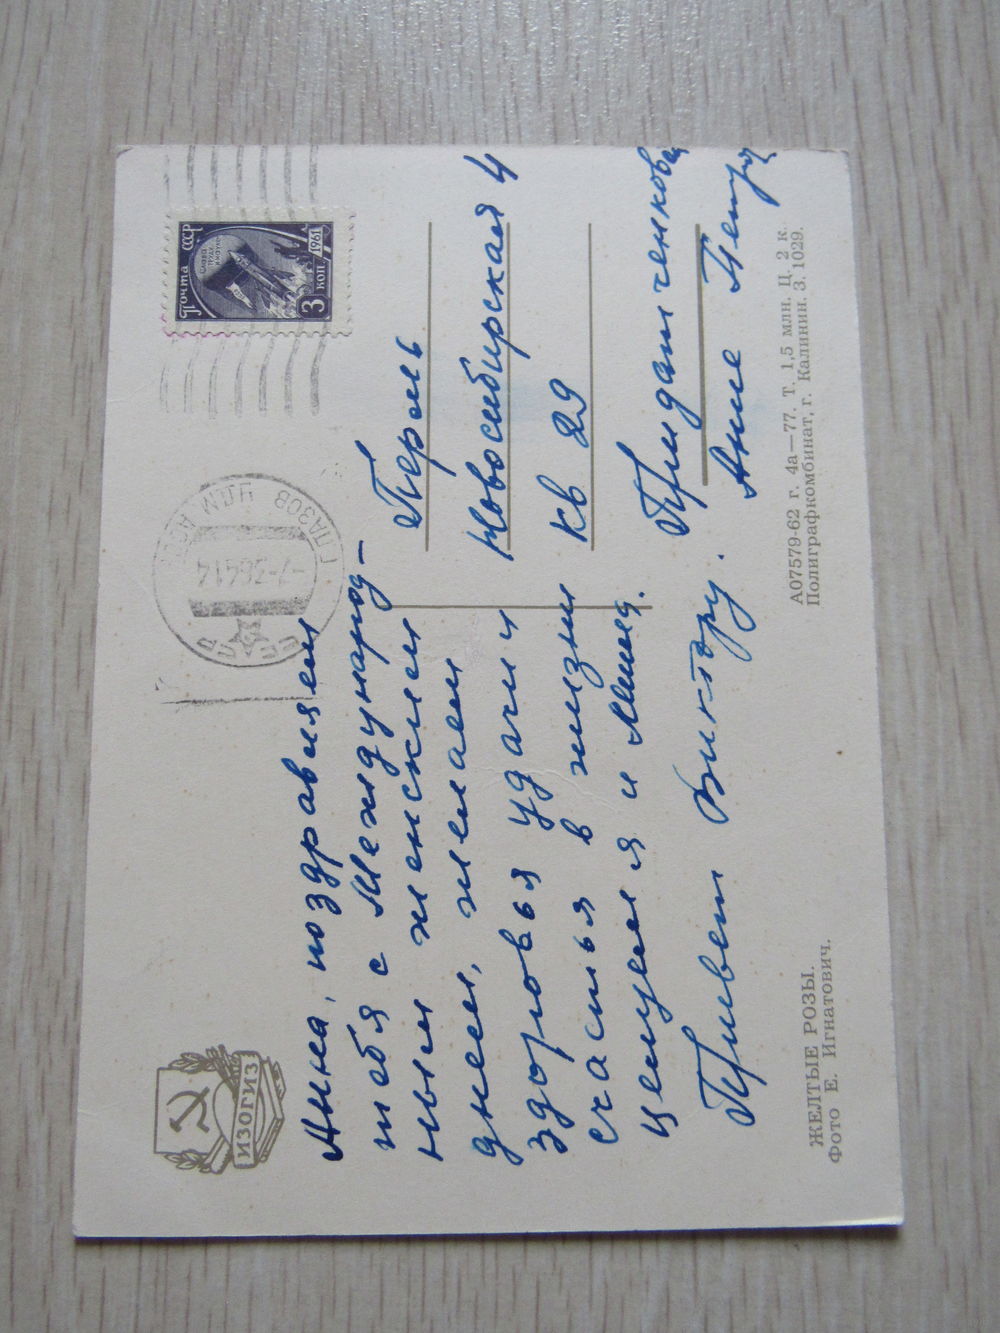 ИЗОГИЗ
Анна, поздравляем
тебя с Международ-
ным женским
днем, желаем
здоровья удачи и
счастья в жизни
целуем я и Миша.
Привет Виктору.
ЖЕЛТЫЕ РОЗЫ.
Фото Е. Игнатович.
Почта СССР
СЛАВА
ТРУДУ
И НАУКЕ
3 КОП
1961
ГЛАЗОВ УДМ АССР
-7-36414
СССР
Пермь
Новосибирская 4
кв 29
Приданниковой
Анне Петр
А07579-62 г. 4а—77. Т. 1,5 млн. Ц. 2 к.
Полиграфкомбинат, г. Калинин. З. 1029.